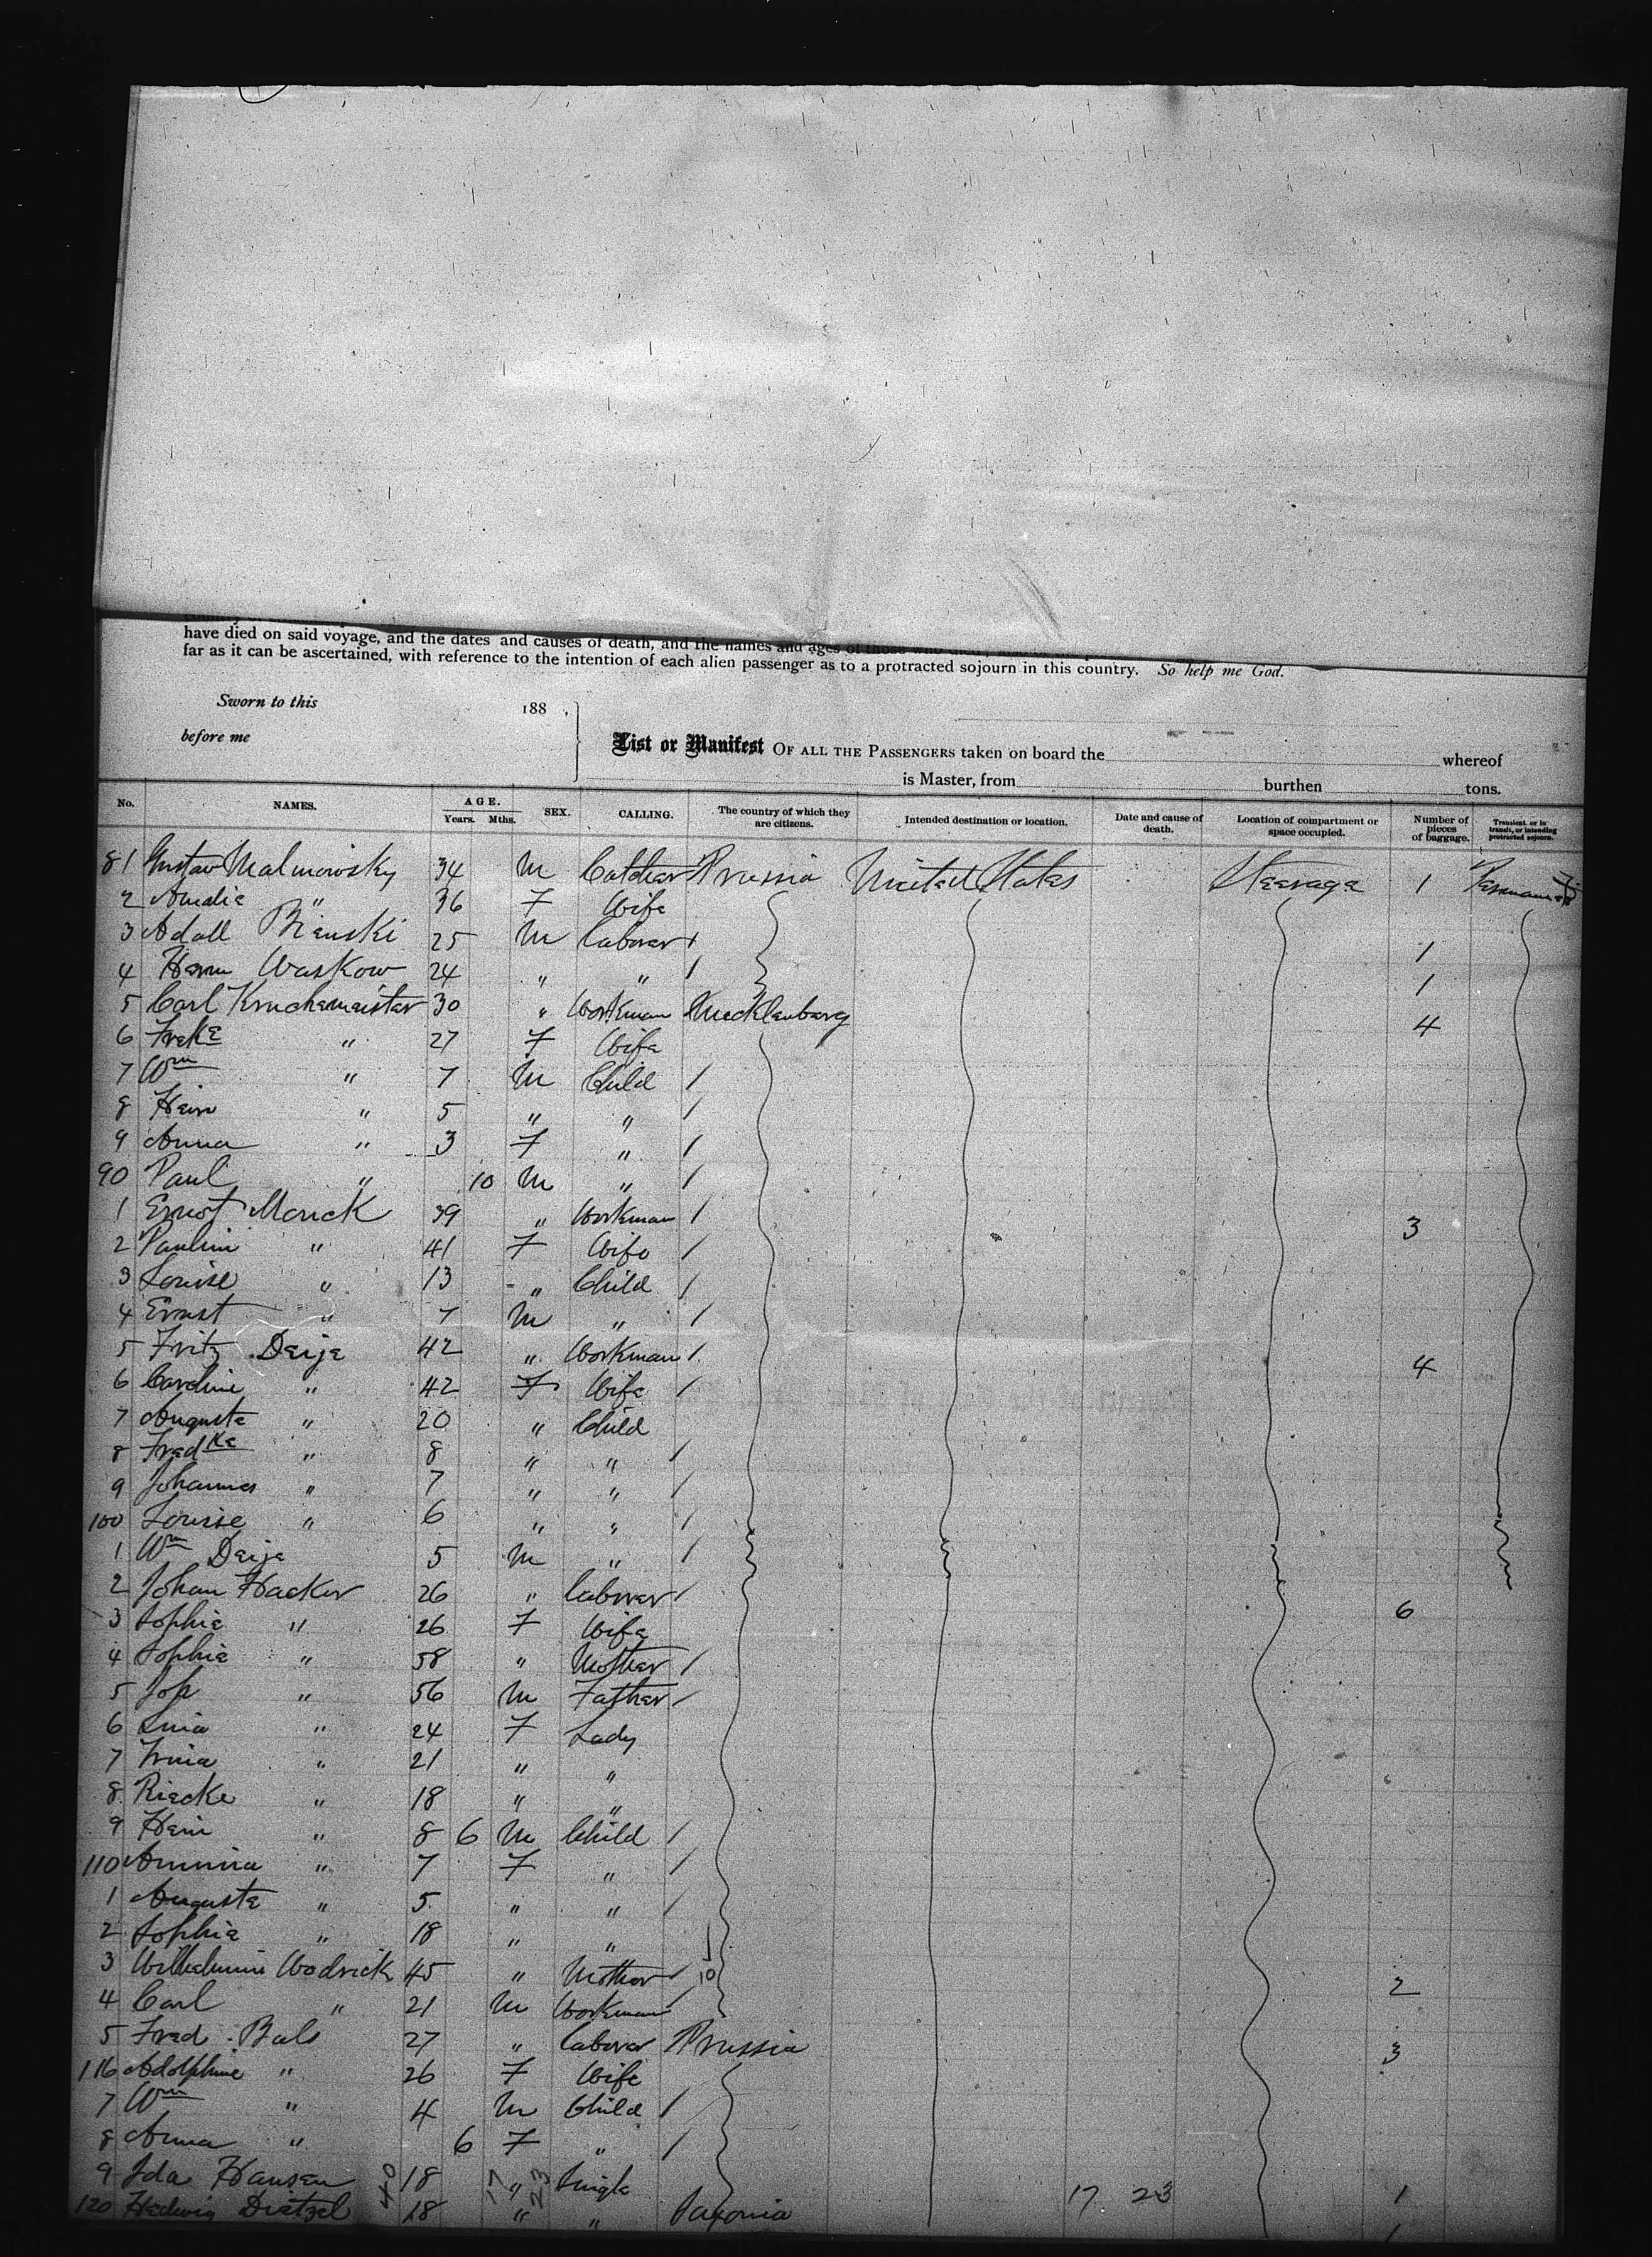 have died on said voyage, and the dates and causes of death, and the names and ages of those who
far as it can be ascertained, with reference to the intention of each alien passenger as to a protracted sojourn in this country. So help me God.
Sworn to this 188 ,
before me
List or Manifest OF ALL THE PASSENGERS taken on board the whereof
is Master, from burthen tons.
No. NAMES. AGE. Years. Mths. SEX. CALLING. The country of which they are citizens. Intended destination or location. Date and cause of death. Location of compartment or space occupied. Number of pieces of baggage. Transient or in transit, or intending protracted sojourn.
81 Gustav Malinowsky 34 M Prussia United States Steerage 1
2 Amalie " 36 F Wife
3 Adolf 25 M Laborer 1
4 Herm Waskow 24 " " / 1
5 Carl Kruchemeister 30 " Workman Mecklenburg 4
6 Freke " 27 F Wife
7 Wm " 7 M Child /
8 Hein " 5 " " /
9 Anna " 3 F " /
90 Paul " 10 M " /
1 Ernst Monck 39 " Workman / 3
2 Paulin " 41 F Wife /
3 Louise " 13 " Child /
4 Ernst " 7 M " /
5 Fritz Deije 42 " Workman / 4
6 Caroline " 42 F Wife /
7 Auguste " 20 " Child
8 Fredke " 8 " " /
9 Johannes " 7 " " /
100 Louise " 6 " " /
1 Wm Deije 5 M " /
2 Johan Hacker 26 " Laborer / 6
3 Sophie " 26 F Wife
4 Sophie " 58 " Mother /
5 Joh " 56 M Father /
6 " 24 F Lady
7 " 21 " "
8 Riecke " 18 " "
9 Hein " 8 6 M Child /
110 " 7 F " /
1 Auguste " 5 " " /
2 Sophie " 18 " "
3 Wilhelmine Wodrick 45 " Mother / 10 2
4 Carl " 21 M Workman /
5 Fred Bals 27 " Laborer Prussia 3
116 Adolphine " 26 F Wife
7 Wm " 4 M Child /
8 Anna " 6 F " /
9 Ida Hansen 40 18 17 " 23 Single 17 23 1
120 Hedwig Dietzel 18 " " Saxonia 1